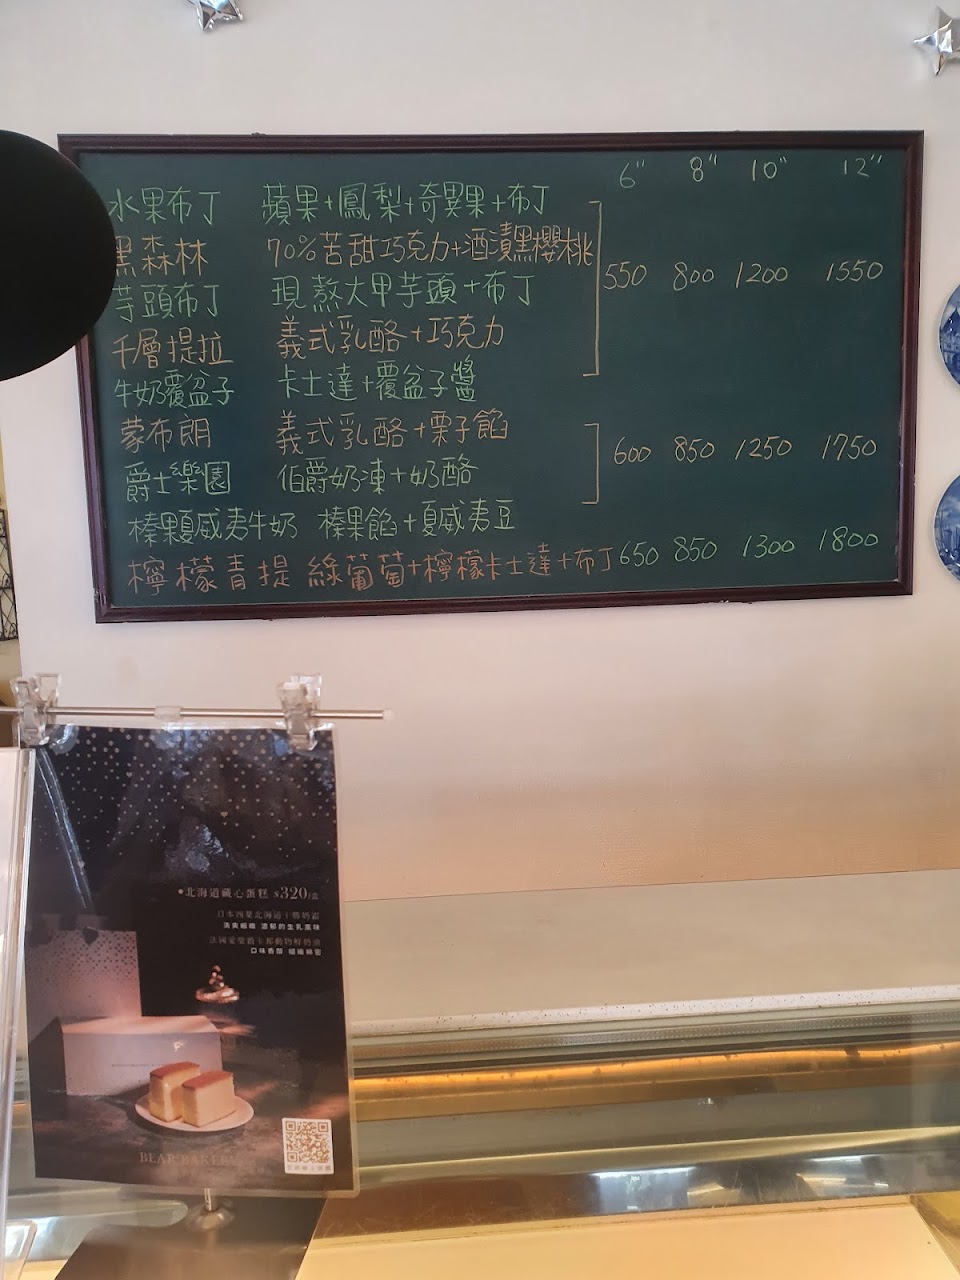 6" 8" 10" 12"
水果布丁 蘋果+鳳梨+奇異果+布丁
黑森林 70%苦甜巧克力+酒漬黑櫻桃
550 800 1200 1550
芋頭布丁 現熬大甲芋頭+布丁
千層提拉 義式乳酪+巧克力
牛奶覆盆子 卡士達+覆盆子醬
蒙布朗 義式乳酪+栗子餡
600 850 1250 1750
爵士樂園 伯爵奶凍+奶酪
榛果夏威夷牛奶 榛果餡+夏威夷豆
檸檬青提 綠葡萄+檸檬卡士達+布丁 650 850 1300 1800
•北海道藏心蛋糕 $320/盒
日本四葉北海道十勝奶霜
清爽細緻 濃郁的生乳風味
法國愛樂薇卡邦動物鮮奶油
口味香醇 細緻綿密
BEAR BAKERY